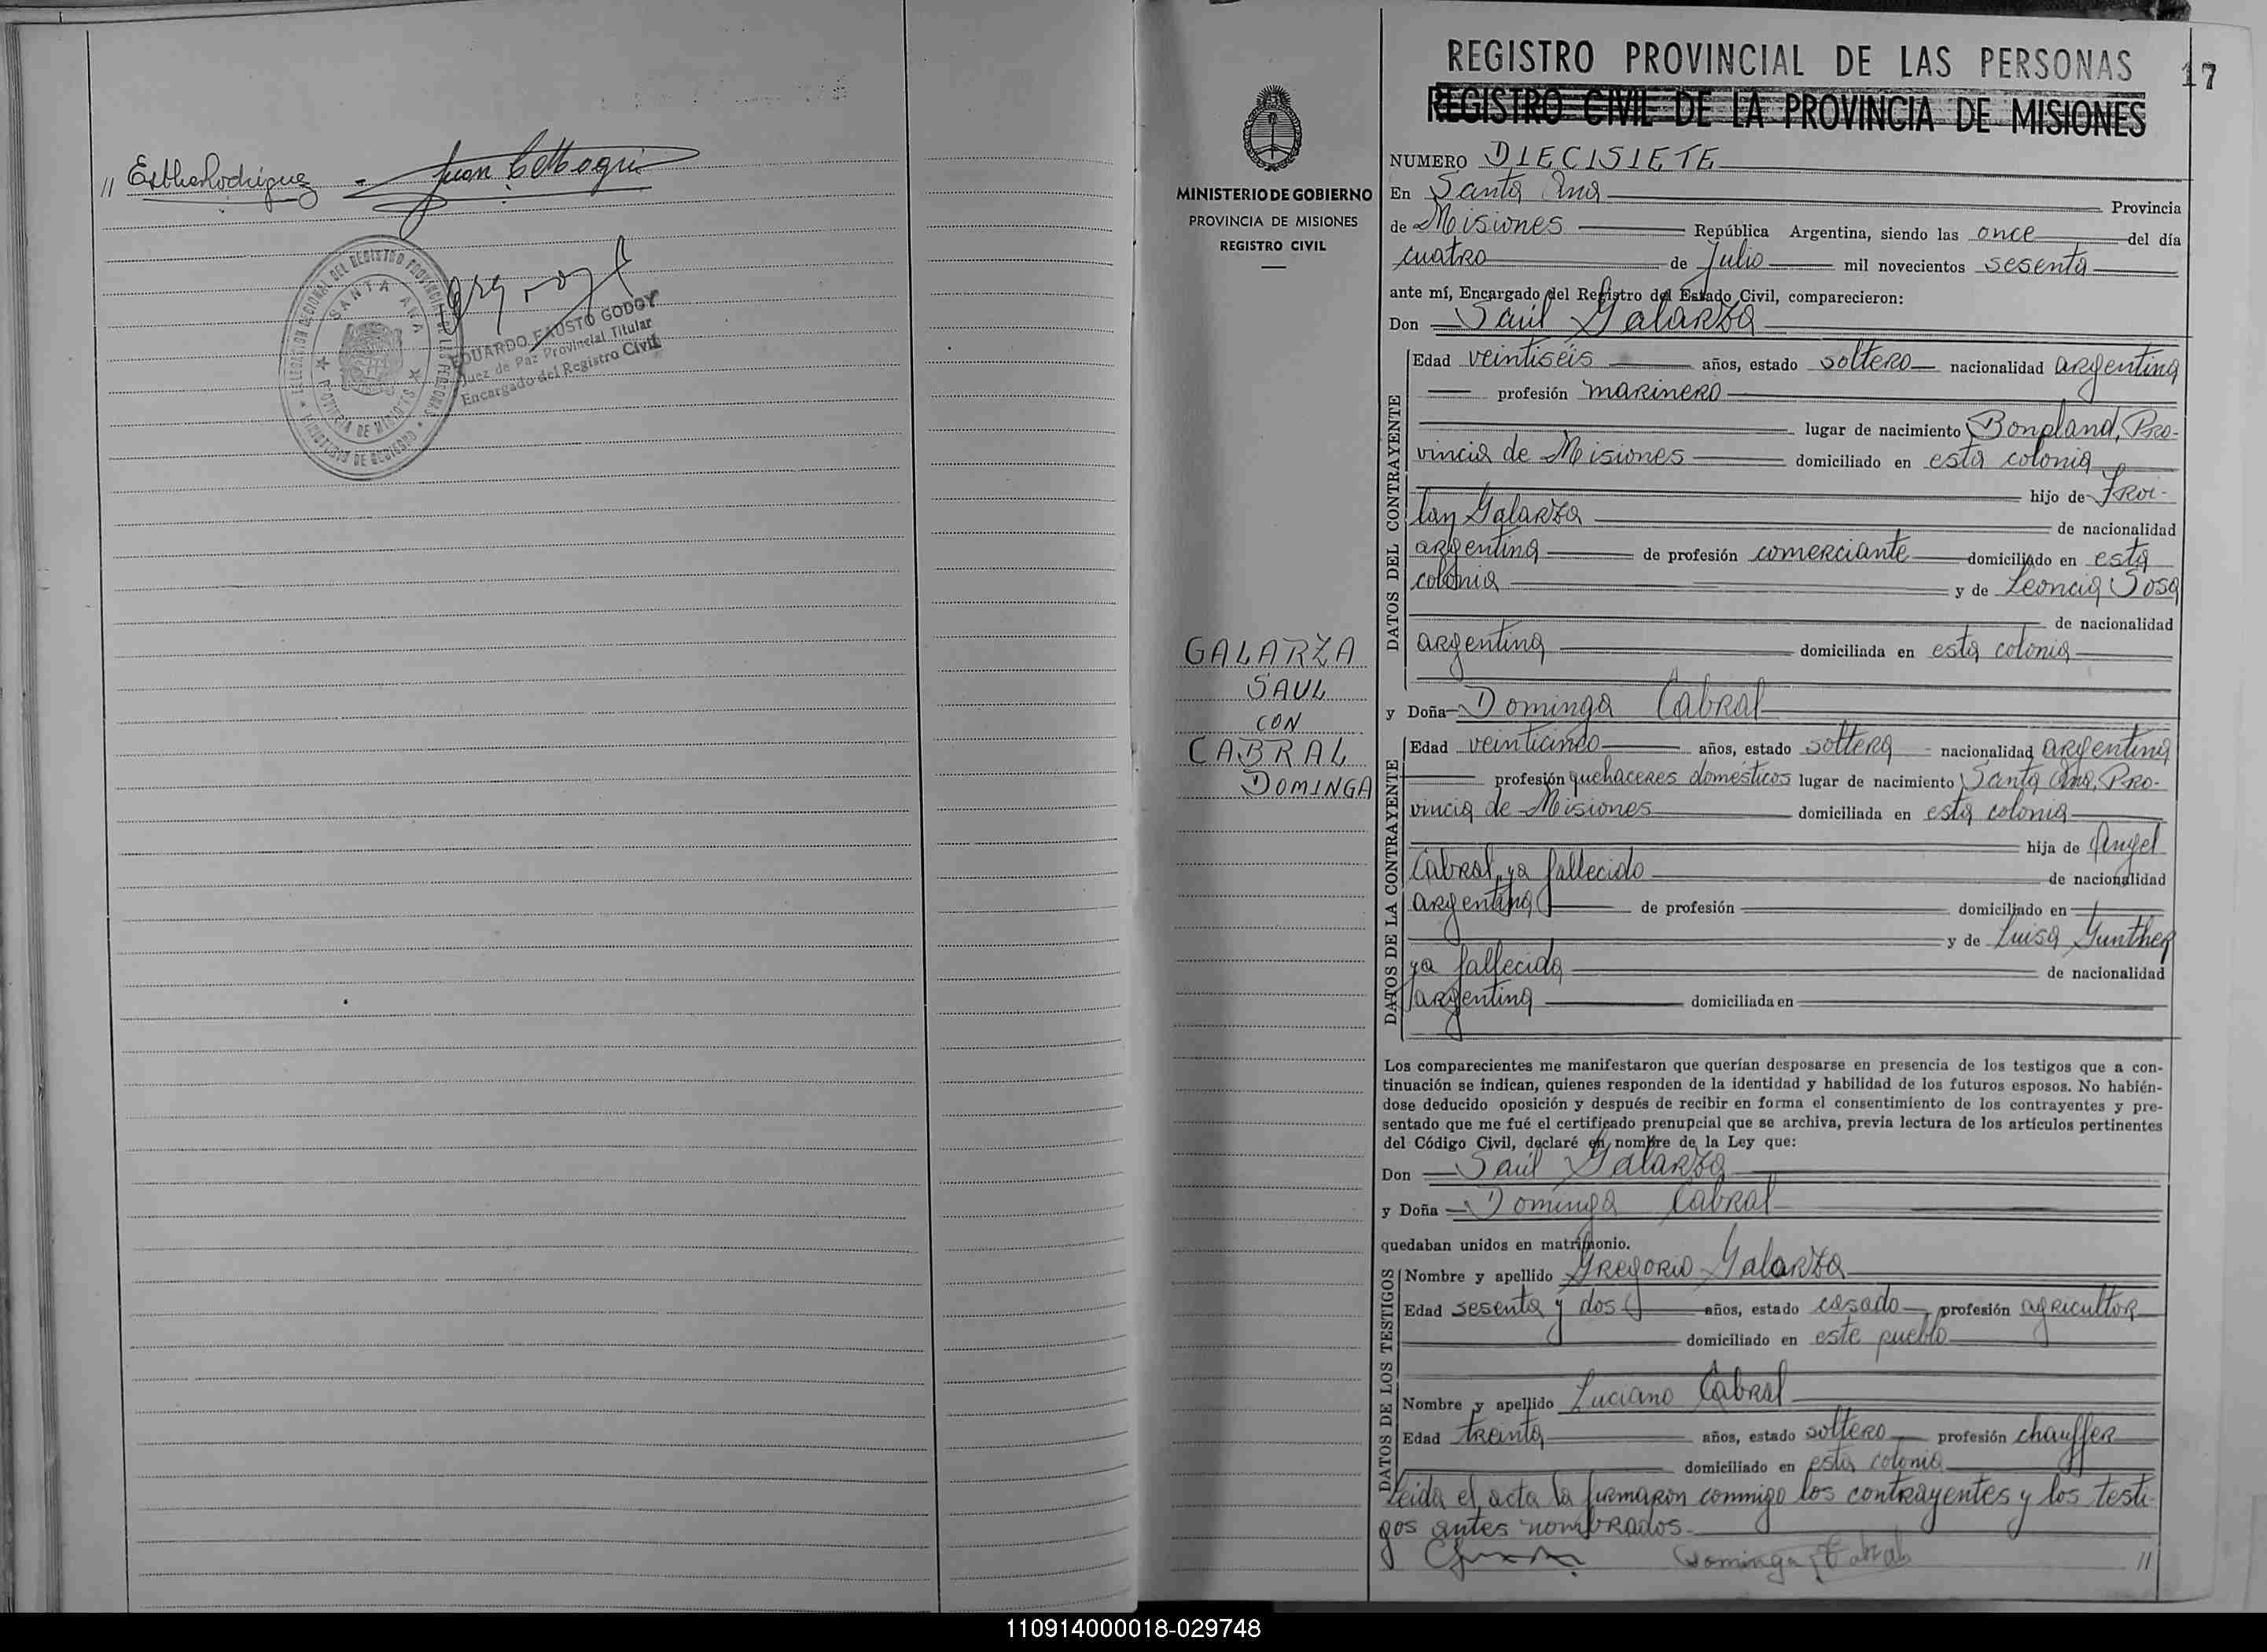 // Esther Rodriguez
SANTA ANA
EDUARDO FAUSTO GODOY
Juez de Paz Provincial Titular
Encargado del Registro Civil
MINISTERIO DE GOBIERNO
PROVINCIA DE MISIONES
REGISTRO CIVIL
GALARZA
SAUL
CON
CABRAL
DOMINGA
REGISTRO PROVINCIAL DE LAS PERSONAS
17
REGISTRO CIVIL DE LA PROVINCIA DE MISIONES
NUMERO DIECISIETE
En Santa Ana Provincia
de Misiones República Argentina, siendo las once del día
cuatro de Julio mil novecientos sesenta
ante mí, Encargado del Registro del Estado Civil, comparecieron:
Don Saúl Galarza
DATOS DEL CONTRAYENTE
Edad veintiséis años, estado soltero nacionalidad argentina
profesión marinero
lugar de nacimiento Bonpland, Pro-
vincia de Misiones domiciliado en esta colonia
hijo de Froi-
lan Galarza
de nacionalidad
argentina de profesión comerciante domiciliado en esta
colonia y de Leoncia Sosa
de nacionalidad
argentina domiciliada en esta colonia
y Doña Dominga Cabral
DATOS DE LA CONTRAYENTE
Edad veinticinco años, estado soltera nacionalidad argentina
profesión quehaceres domésticos lugar de nacimiento Santa Ana, Pro-
vincia de Misiones domiciliada en esta colonia
hija de Angel
Cabral, ya fallecido de nacionalidad
argentina de profesión domiciliado en
y de Luisa Gunther
ya fallecida de nacionalidad
argentina domiciliada en
Los comparecientes me manifestaron que querían desposarse en presencia de los testigos que a con-
tinuación se indican, quienes responden de la identidad y habilidad de los futuros esposos. No habién-
dose deducido oposición y después de recibir en forma el consentimiento de los contrayentes y pre-
sentado que me fué el certificado prenupcial que se archiva, previa lectura de los artículos pertinentes
del Código Civil, declaré en nombre de la Ley que:
Don Saúl Galarza
y Doña Dominga Cabral
quedaban unidos en matrimonio.
DATOS DE LOS TESTIGOS
Nombre y apellido Gregorio Galarza
Edad sesenta y dos años, estado casado profesión agricultor
domiciliado en este pueblo
Nombre y apellido Luciano Cabral
Edad treinta años, estado soltero profesión chauffer
domiciliado en esta colonia
Leida el acta la firmaron conmigo los contrayentes y los testi-
gos antes nombrados.
Dominga Cabral //
110914000018-029748